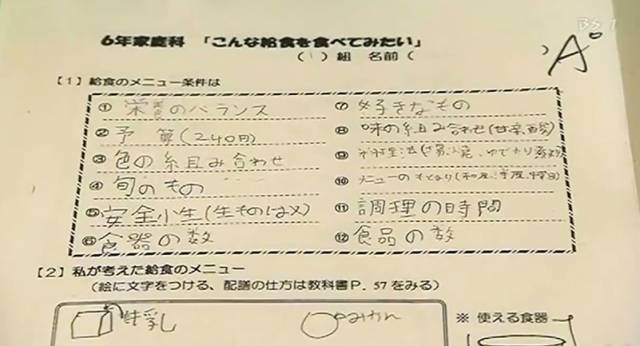 BS 1
6年家庭科 「こんな給食を食べてみたい」
( 1 ) 組 名前 (
) A°
【1】給食のメニュー条件は
① 栄養のバランス
② 予算(240円)
③ 色の組み合わせ
④ 旬のもの
⑤ 安全小生(生ものは×)
⑥ 食器の数
⑦ 好きなもの
⑧ 味の組み合わせ(甘辛
⑨
⑩ メニューの
⑪ 調理の時間
⑫ 食品の数
【2】私が考えた給食のメニュー
(絵に文字をつける、配譜の仕方は教科書P. 57をみる)
牛乳
みかん
※ 使える食器